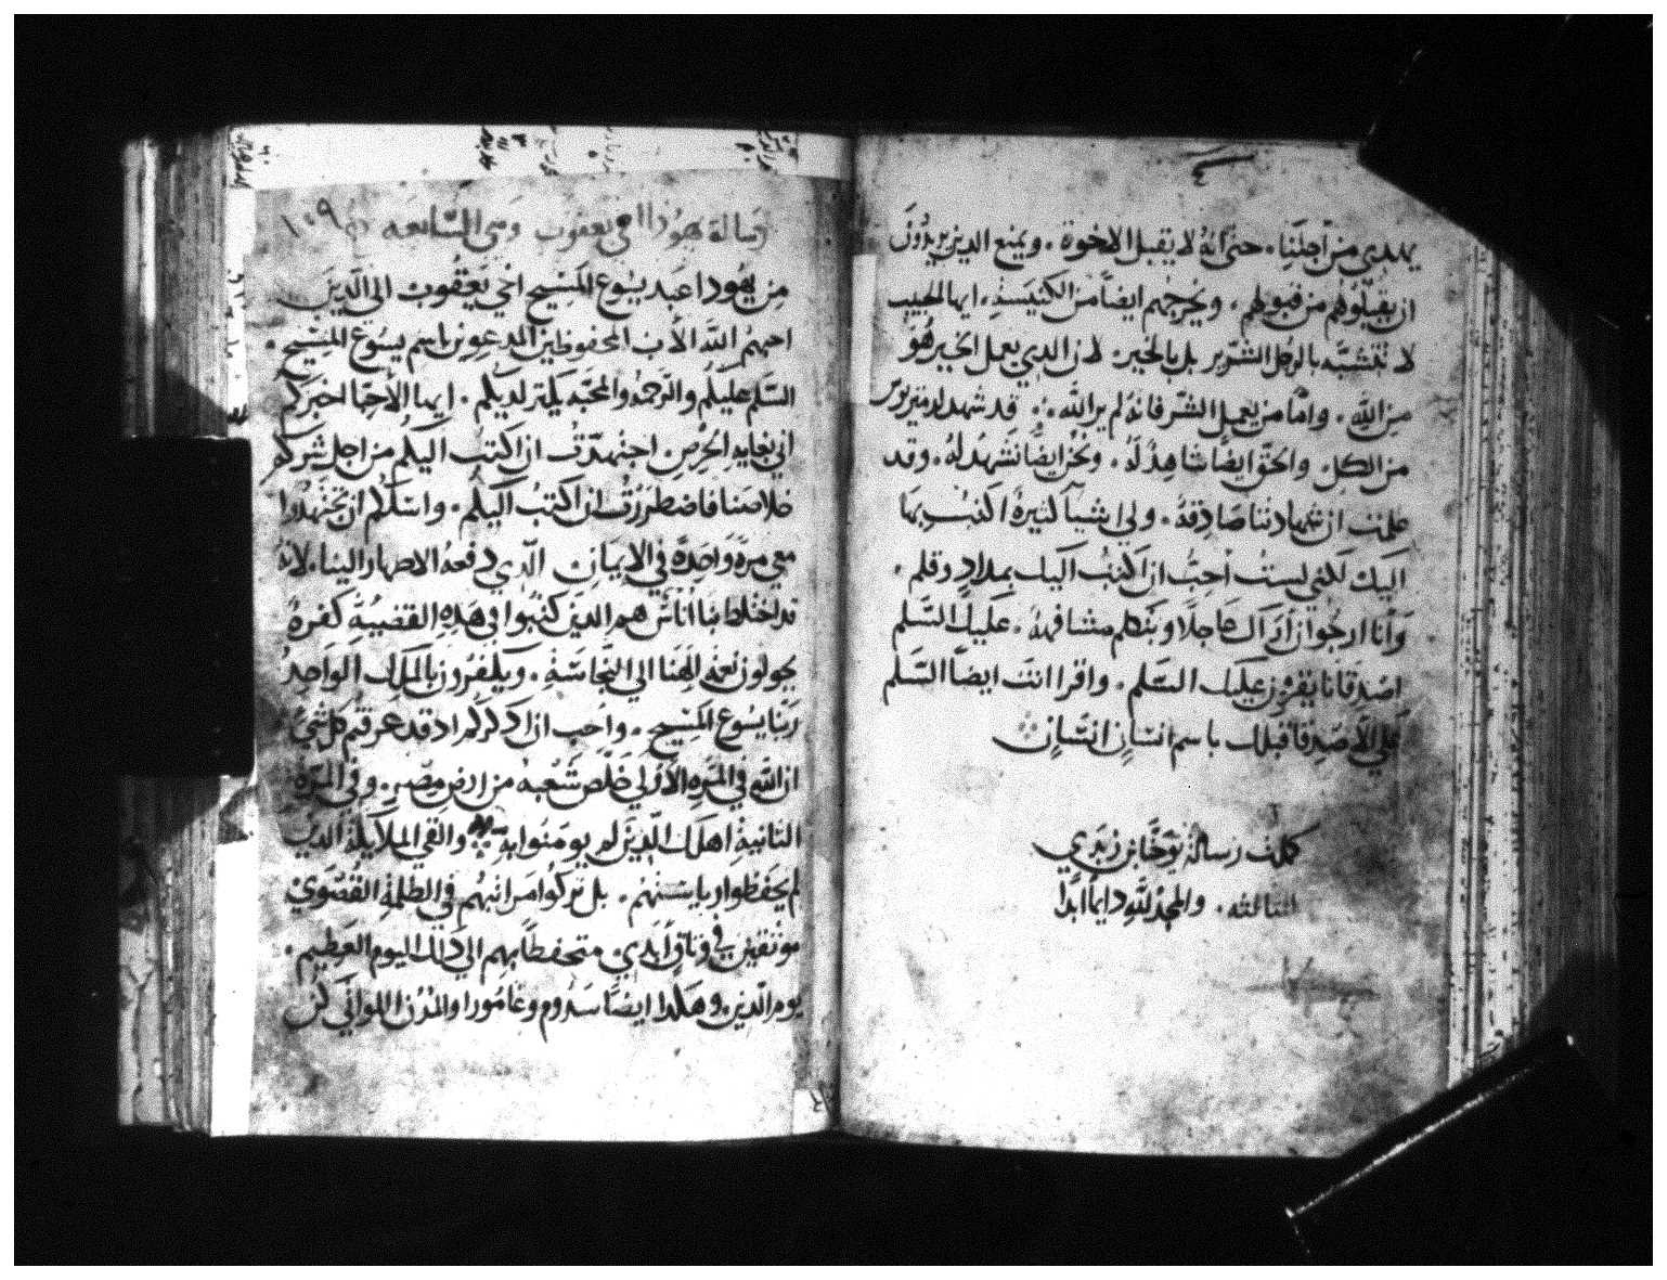 يهدي من اجلنا. حتى انه لا يقبل الاخوة. ويمنع الدين يريدون
ان يقبلوهم من قبولهم. ويخرجهم ايضاً من الكنيسة. ايها الحبيب
لا تتشبه بالرجل الشرير بل بالخير. لان الدي يعمل الخير هو
من الله. واما من يعمل الشر فانه لم ير الله. قد شهد لديمتريوس
من الكل. والحق ايضاً شاهد له. ونحن ايضا نشهد له. وقد
علمت ان شهادتنا صادقة. ولي اشيا كثيرة اكتب بها
اليك لكني لست احب ان اكتب اليك بمداد وقلم.
وانا ارجوا ان اراك عاجلا ونتكلم مشافهة. عليك السلم
اصدقانا يقرون عليك السلم. واقرا انت ايضاً السلم
علي الاصدقا قبلك باسم انسان انسان
كملت رسالة يوحنا بن زبدي
الثالثه. والمجد لله دايماً ابداً
رسالة يهودا اخي يعقوب وهي السابعه ١٠٩
من يهودا عبد يسوع المسيح اخي يعقوب الى الدين
احبهم الله الاب المحفوظين المدعوين باسم يسوع المسيح.
السلم عليكم والرحمة والمحبه يكثر لديكم. ايها الاحبا اخبركم
اني بغاية الحرص. اجتهدت ان اكتب اليكم من اجل شركه
خلاصنا فاضطررت ان اكتب اليكم. واسلكم ان تجتهدوا
معي مرة واحدة في الايمان الدي دفعه الاطهار الينا. لانه
قد اختلط بنا اناس هم الدين كتبوا في هده القضية كفرة
يحولون نعمة الهنا الي النجاسة. ويكفرون بالملك الواحد
ربنا يسوع المسيح. واحب ان ادكركم اد قد عرفتم كل شي
ان الله في المرة الاولي خلص شعبه من ارض مصر. وفي المرة
الثانية اهلك الدين لم يومنوا به والقي الملايكة الدين
لم يحفظوا رياستهم. بل تركوا مراتبهم في الظلمة القصوي
موثقين في وثاق ابدي. متحفظاً بهم الي دلك اليوم العظيم.
يوم الدين. وهكدا ايضاً سدوم وغامورا والمدن اللواتي كن